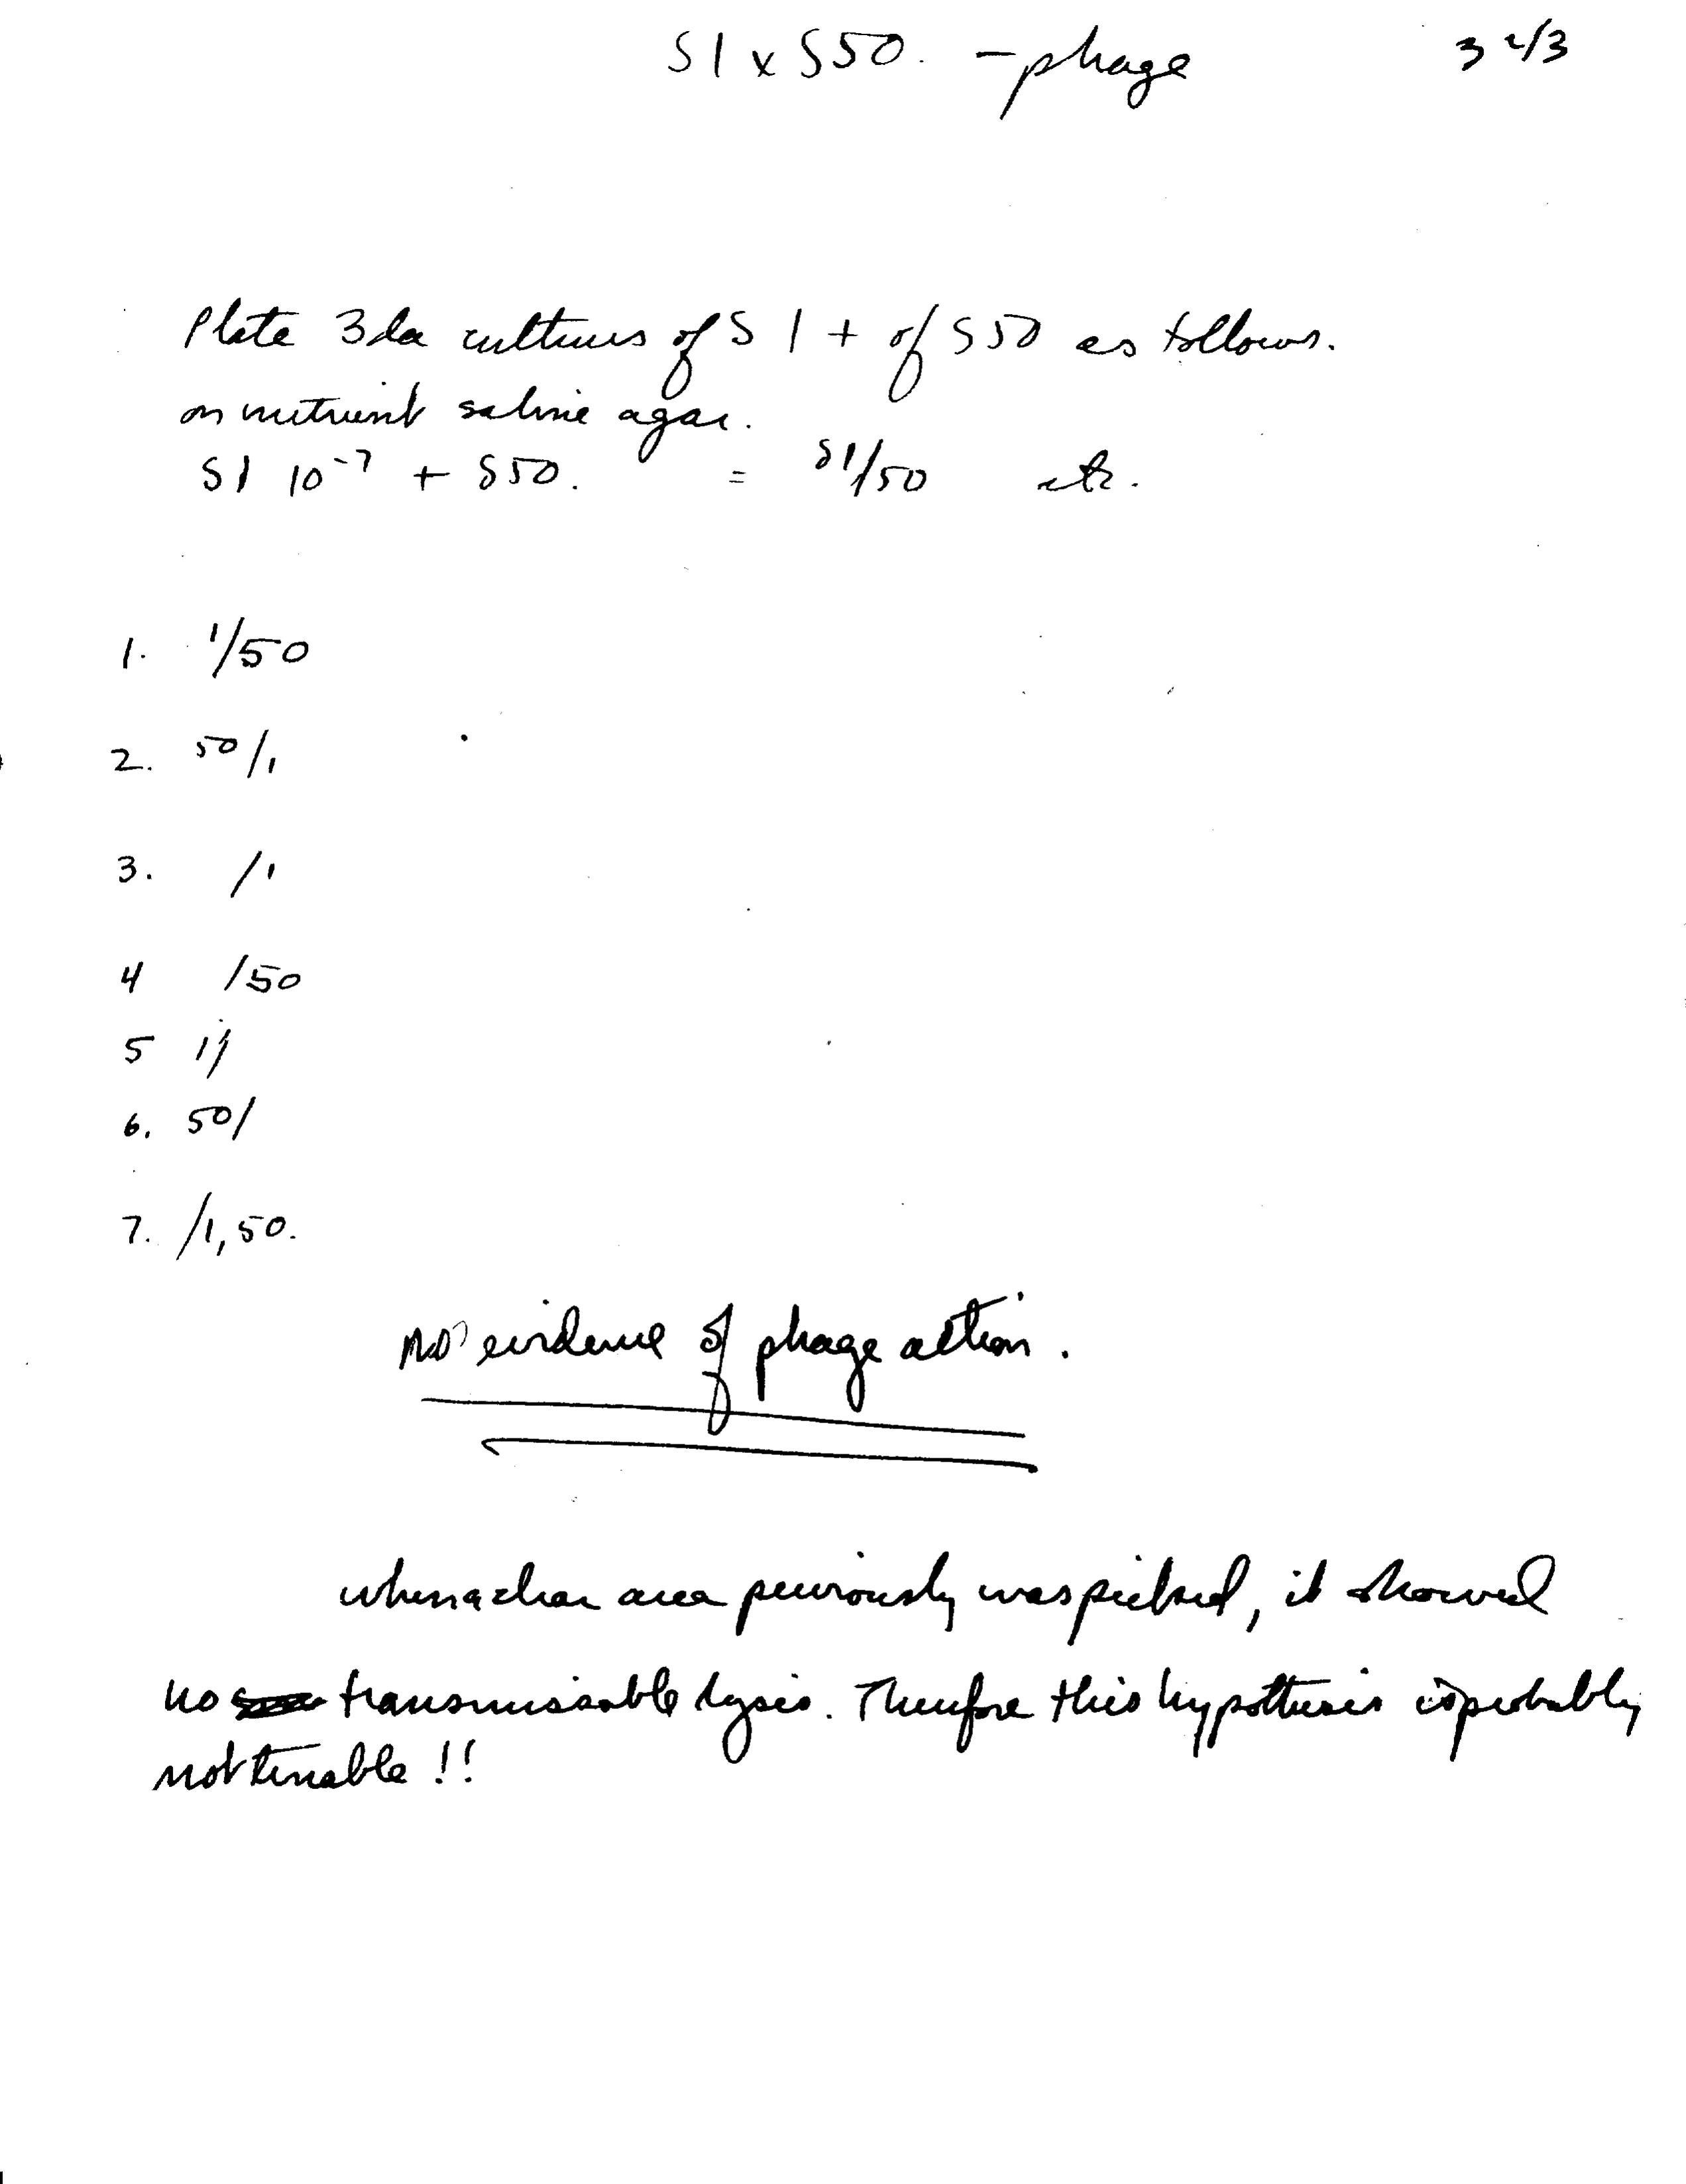 S1 x S50. - phage
3 2/3
Plate 3da cultures of S 1 + of S50 as follows.
on nutrient saline agar.
S1 10⁻⁷ + S50. = S1/50 etc.
1. 1/50
2. 50/1
3. /1
4 /50
5 1/
6. 50/
7. /1, 50.
No evidence of phage action.
when a clear area previously was picked, it showed
no transmissable lysis. Therefore this hypothesis is probably
not tenable !!